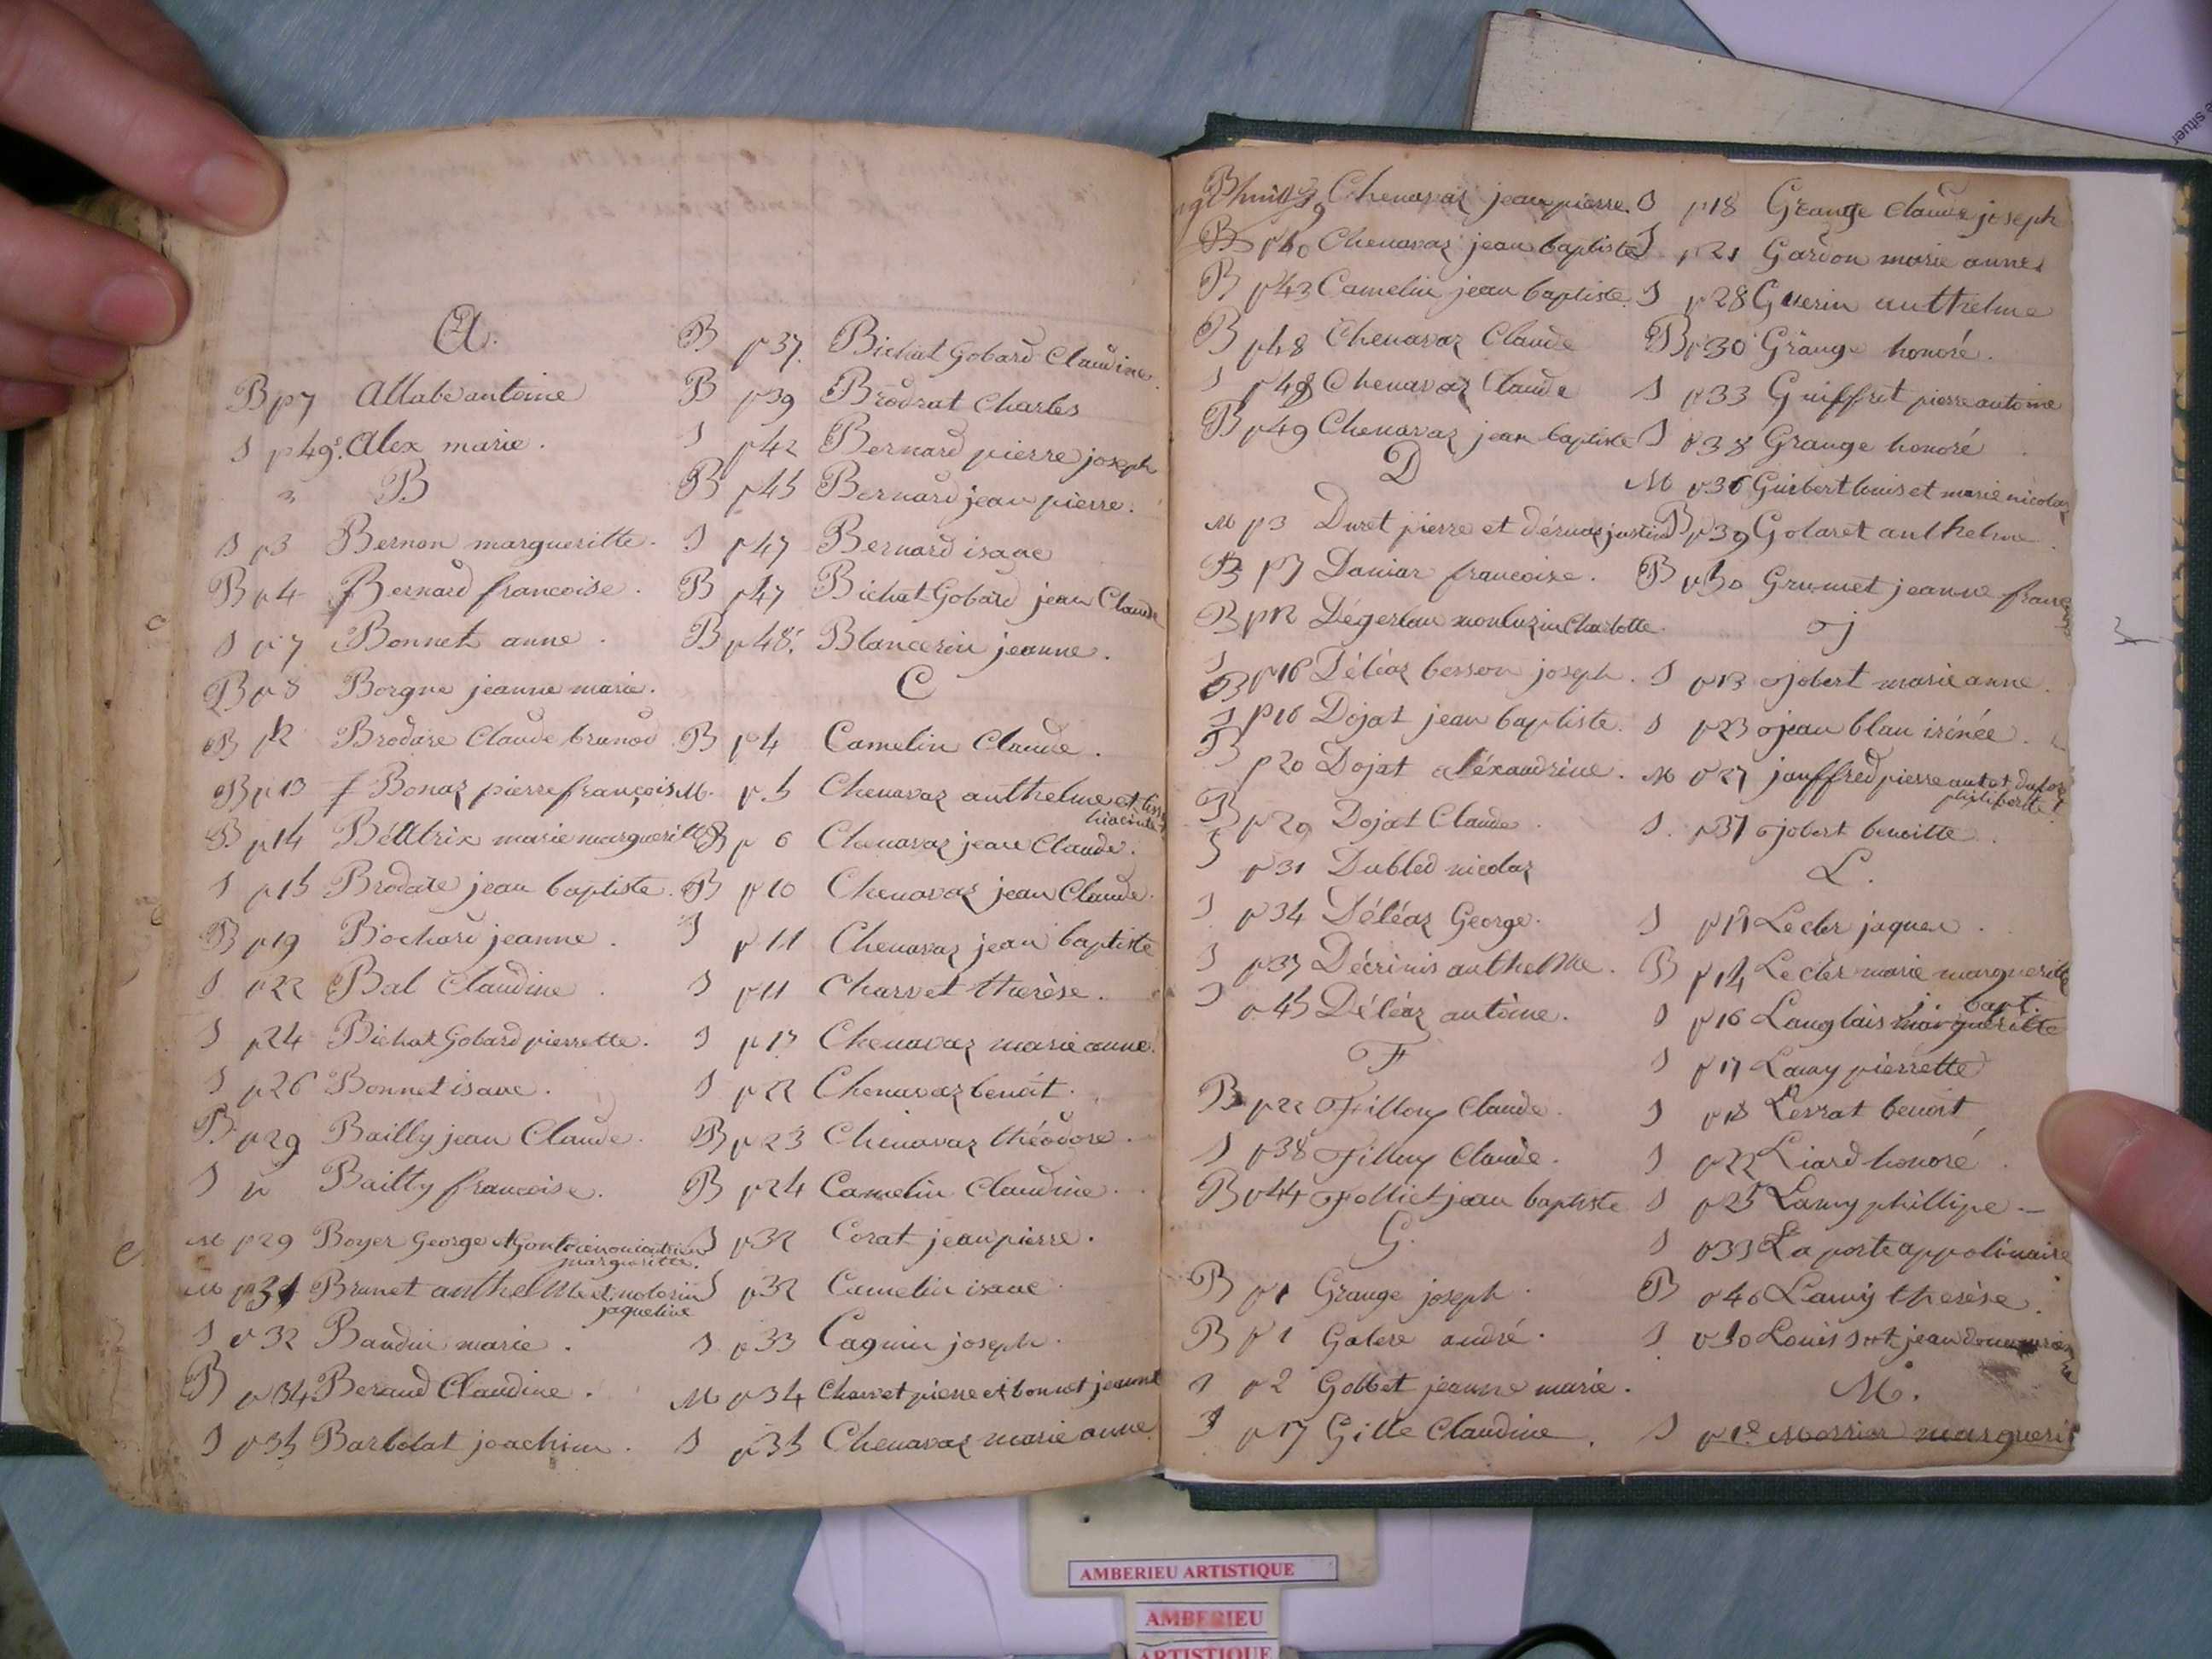 A.
B p7 Allabe antoine
S p49 Alex marie.
B
S p3 Bernon margueritte.
B p4 Bernard francoise.
S p7 Bonnet anne.
B p8 Borgne jeanne marie.
B p12 Brodare Claude brunod
B p13 f Bonaz pierre françois
B p14 Béatrix marie margueritte
S p15 Brodate jean baptiste.
B p19 Bochard jeanne.
S p22 Bal Claudine
S p24 Bichat Gobard pierrette.
S p26 Bonnet isaac.
B p29 Bailly jean Claude.
S p Bailly francoise.
M p29 Boyer George et
margueritte.
M p31 Brunet anthelme et
jaqueline
S p32 Baudin marie.
B p34 Beraud Claudine.
S p35 Barbolat joachim.
B p37. Bichat Gobard Claudine.
B p39 Brodrat Charles
S p42 Bernard pierre joseph
B p45 Bernard jean pierre.
S p47 Bernard isaac
B p47 Bichat Gobard jean Claude
B p48. Blancerin jeanne.
C
B p4 Camelin Claude.
M. p5 Chenavaz anthelme et
B p6 Chenavaz jean Claude.
B p10 Chenavaz jean Claude.
S p11 Chenavaz jean baptiste
S p11 Charvet therèse.
S p17 Chenavaz marie anne.
S p22 Chenavaz benoit.
B p23 Chenavaz théodore.
B p24 Camelin Claudine.
S p32 Corat jean pierre.
S p32 Camelin isaac
S p33 Cagnin joseph.
M p34 Charvet pierre et bonnet jeanne
S p35 Chenavaz marie anne
Chenavaz jean pierre.
B p40 Chenavaz jean baptiste
B p43 Camelin jean baptiste.
B p48 Chenavaz Claude
S p48 Chenavaz Claude
B p49 Chenavaz jean baptiste
D
M p3 Duret pierre et
B p7 Daniar francoise.
B p12 Dégerlan monluzin Charlotte.
S p16 Déléaz besson joseph.
p16 Dojat jean baptiste.
B p20 Dojat aléxandrine.
B p29 Dojat Claude
S p31 Dubled nicolaz
S p34 Déléaz George.
S p37 Décrinis anthelme.
S p45 Déléaz antoine.
F
B p22 Filloy Claude.
S p38 Filloy Claude.
B p44 Folliet jean baptiste
G.
B p1 Grange joseph.
B p1 Galere andré.
S p2 Gobbet jeanne marie.
S p17 Gille Claudine.
S p18 Grange Claude joseph
S p21 Gardon marie anne
S p28 Guerin anthelme
B p30 Grange honoré.
S p33 Guiffret pierre antoine
S p38 Grange honoré
M p36 Guibert louis et marie nicolaz
B p39 Golaret anthelme
B p50 Grumet jeanne
j
S p13 jobert marie anne.
S p23 jean blan irénée.
M p27 jauffred pierre
S. p37 jobert benoitte.
L.
S p11 Lecler jaques.
B p14 Lecler marie margueritte
j. bapt.
S p16 Langlais margueritte
S p17 Lamy pierrette
S p18 Levrat benoit
S p22 Liard honoré
S p25 Lamy phillipe
S p33 La porte appolinaire
B p46 Lamy therèse.
S p50 Louis
M.
S p12 Morrier
AMBERIEU ARTISTIQUE
AMBERIEU
ARTISTIQUE